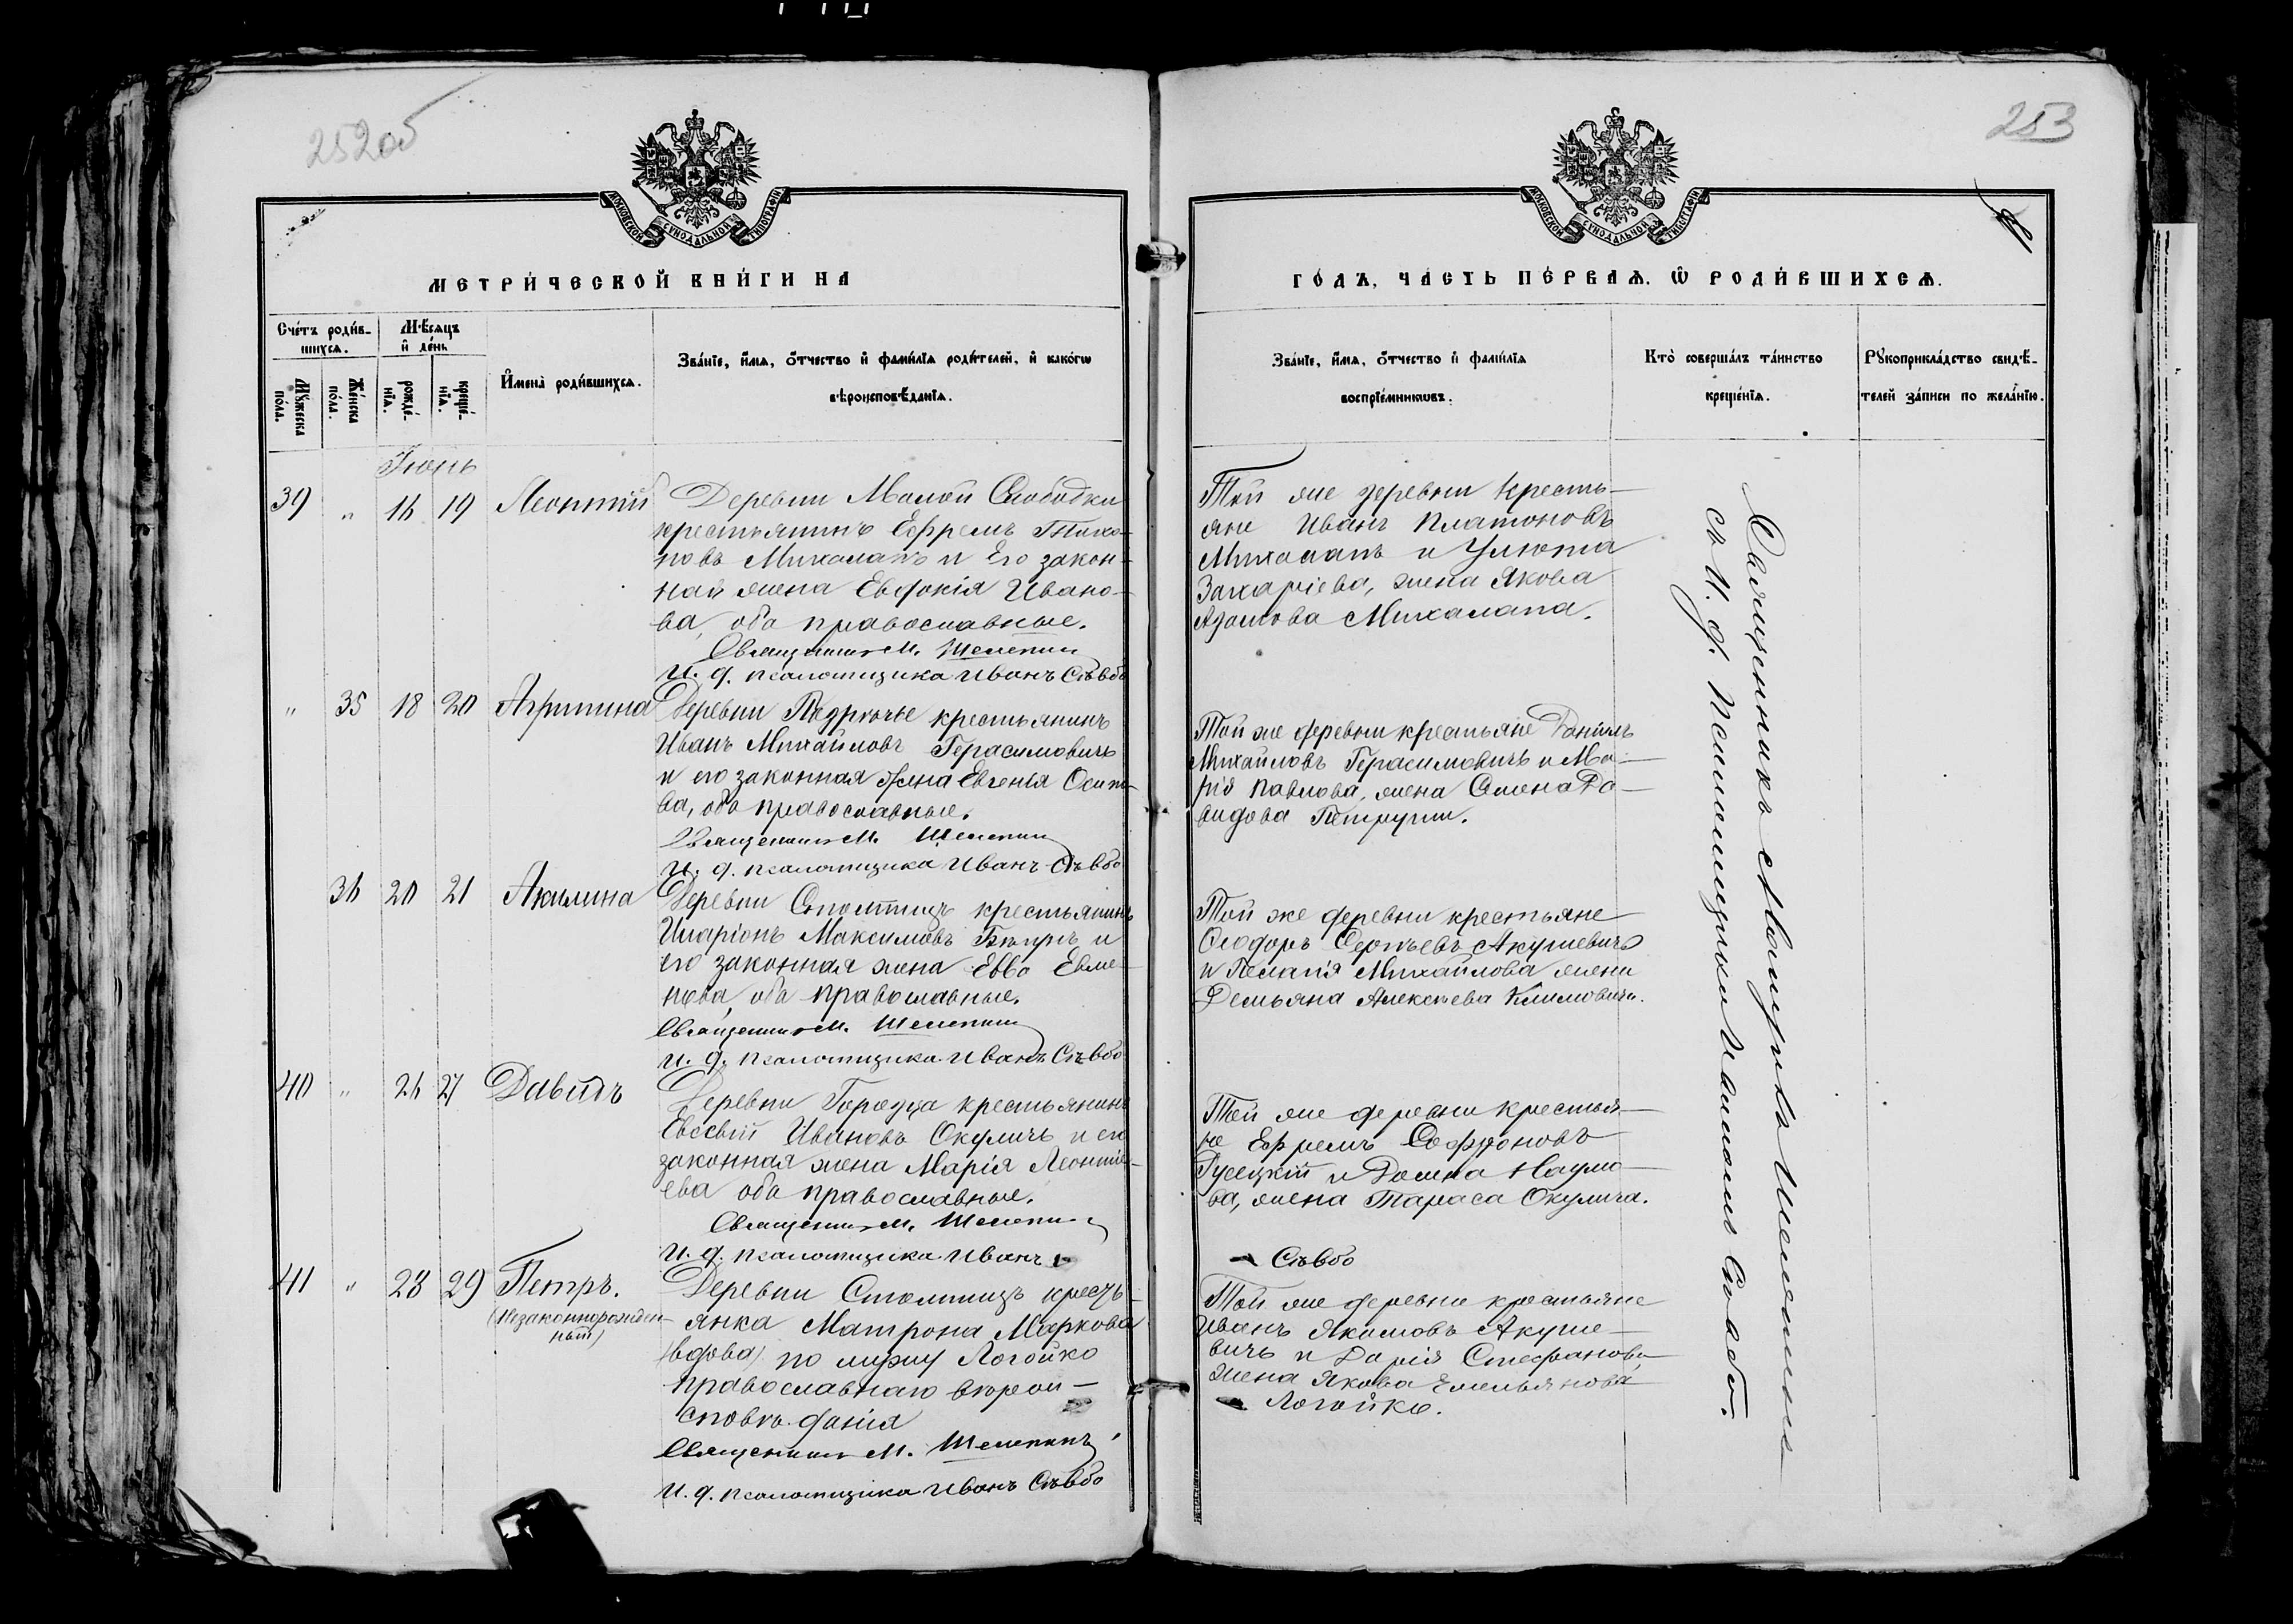 252об
МОСКОВСКОЙ СѴНОДАЛЬНОЙ ТИПОГРАФІИ
МЕТРИ́ЧЕСКОЙ КНИ́ГИ НА
Сче́тъ роди́в-
шихся.
Мѣ́сяцъ
и҆ де́нь
Мꙋ́жеска
по́ла.
Же́нска
по́ла.
рожде́-
нїа.
креще́-
нїа.
И҆мена̀ роди́вшихся.
Зва́нїе, и҆́мя, о҆́тчество и҆ фами́лїя роди́телей, и҆ како́гѡ
вѣроисповѣ́данїя.
Іюнь
39 „ 16 19 Леонтій
Деревни Малой Слободки
крестьянинъ Ефремъ Тихо-
новъ Михалапъ и Его закон-
ная жена Евдокія Ивано-
ва, оба православные.
Священникъ М. Шелепинъ
И. д. псаломщика Иванъ Съвбо
„ 35 18 20 Агрипина
Деревни Подрѣчье крестьянинъ
Иванъ Михайловъ Герасимовичъ
и его законная жена Евгенія Осипо-
ва, оба православные.
Священникъ М. Шелепинъ
И. д. псаломщика Иванъ Съвбо
36 20 21 Акилина
Деревни Столпищъ крестьянинъ
Иларіонъ Максимовъ Бычръ и
его законная жена Евва Евме-
нова, оба православные.
Священникъ М. Шелепинъ
И. д. псаломщика Иванъ Съвбо
40 „ 26 27 Давидъ
Деревни Городца крестьянинъ
Евсевій Ивановъ Окуличъ и его
законная жена Марія Леонтіе-
ева оба православные.
Священникъ М. Шелепинъ
И. д. псаломщика Иванъ
41 „ 28 29 Петръ.
(Незаконнорожден-
ный)
Деревни Столпищъ кресть-
янка Матрона Маркова
(вдова) по мужу Логойко
православнаго вѣрои-
сповѣданія
Священникъ М. Шелепинъ
И. д. псаломщика Иванъ Съвбо
253
МОСКОВСКОЙ СѴНОДАЛЬНОЙ ТИПОГРАФІИ
ГО́ДЪ, ЧА́СТЬ ПЕ́РВАЯ. Ѡ҆ РОДИ́ВШИХСЯ.
Зва́нїе, и҆́мя, о҆́тчество и҆ фами́лїя
воспрїе́мникѡвъ.
Кто̀ соверша́лъ та́инство
креще́нїя.
Рꙋкоприкла́дство свидѣ́-
телей за́писи по жела́нїю.
Той же деревни кресть-
яне Иванъ Платоновъ
Михалапъ и Улюта
Захаріева, жена Якова
Адамова Михалапа.
Той же деревни крестьяне Даніилъ
Михайловъ Герасимовичъ и Ма-
рія Павлова, жена Семена Да-
видова Петручи.
Той же деревни крестьяне
Ѳеодоръ Сергѣевъ Акушевичъ
и Пелагія Михайлова жена
Демьяна Алексѣева Климовича.
Той же деревни крестья-
не Ефремъ Софроновъ
Русецкій и Домна Наумо-
ва, жена Тараса Окулича.
Съвбо
Той же деревни крестьяне
Иванъ Якимовъ Акуше-
вичъ и Дарія Стефанова
жена Якова Емельянова
Логойко.
Священникъ Митрофанъ Шелепинъ
съ И. д. псаломщика Иваномъ Съвбо.